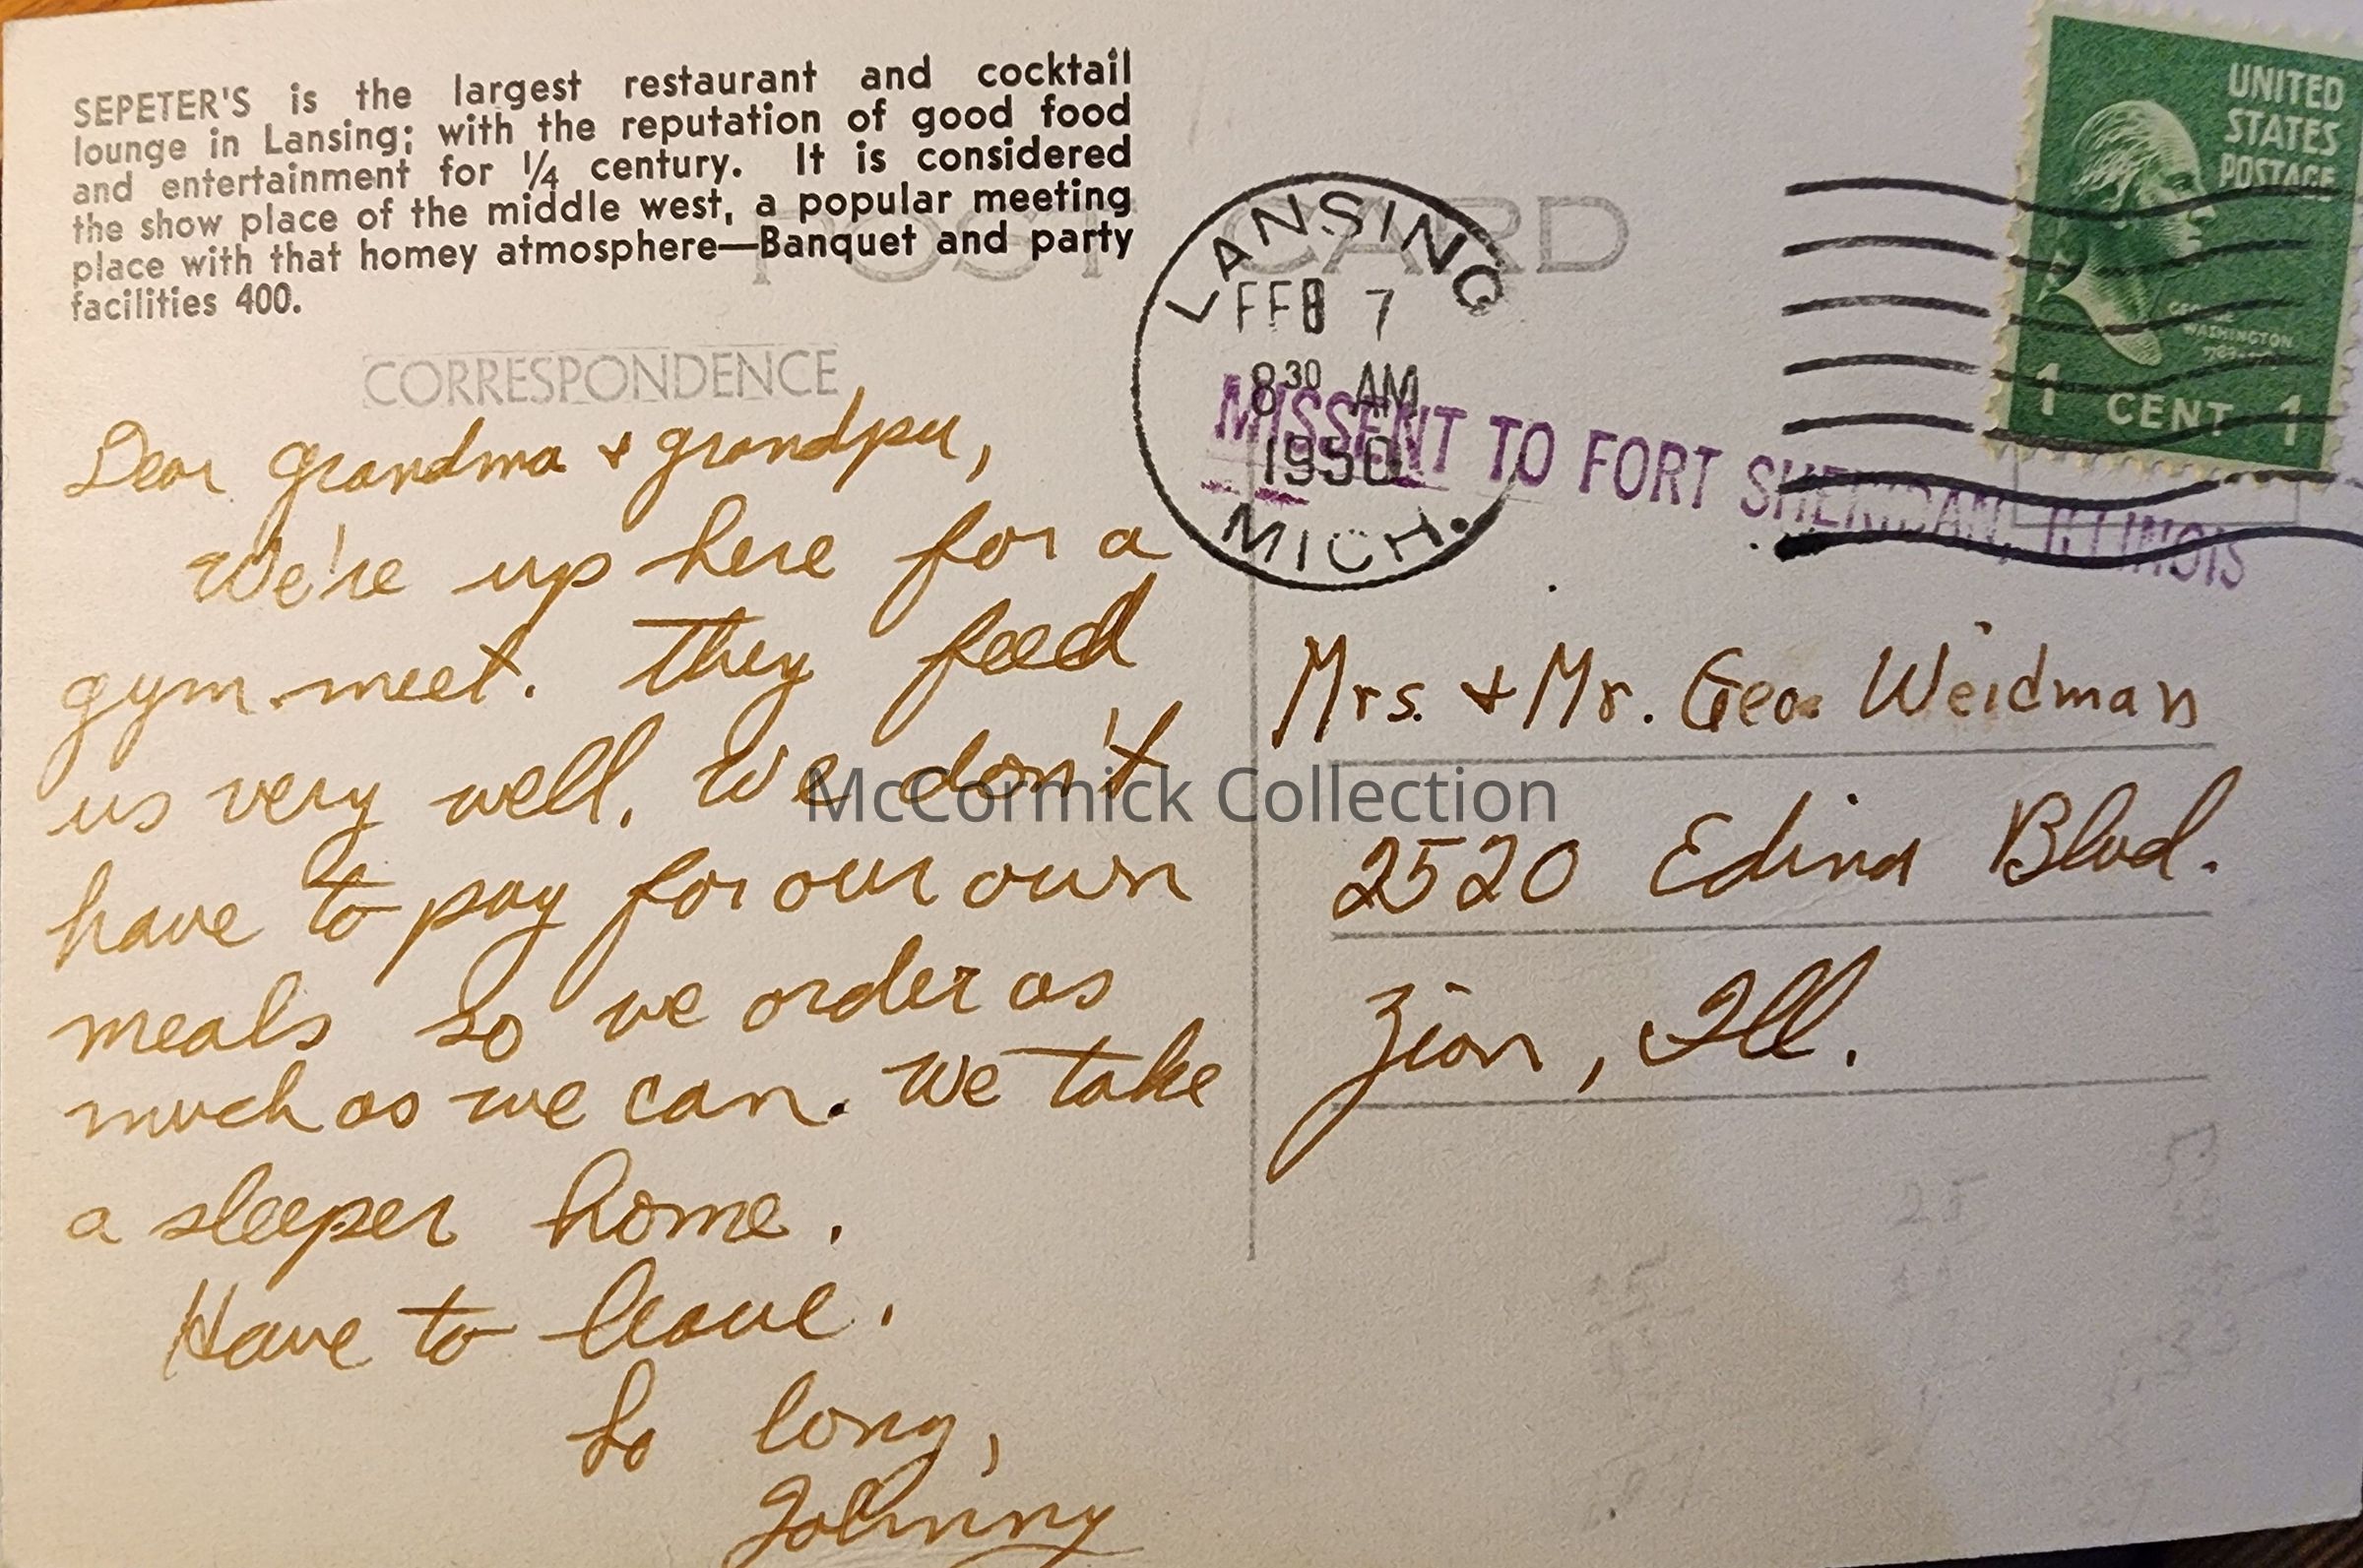 SEPETER'S is the largest restaurant and cocktail
lounge in Lansing; with the reputation of good food
and entertainment for 1/4 century. It is considered
the show place of the middle west, a popular meeting
place with that homey atmosphere—Banquet and party
facilities 400.
POST CARD
CORRESPONDENCE
Dear grandma + grandpa,
We're up here for a
gym meet. They feed
us very well. We don't
have to pay for our own
meals so we order as
much as we can. We take
a sleeper home.
Have to leave.
So long,
Johnny
LANSING
FEB 7
8 30 AM
1950
MICH.
MISSENT TO FORT SHERIDAN, ILLINOIS
UNITED
STATES
POSTAGE
GEORGE
WASHINGTON
1 CENT 1
Mrs. + Mr. Geo. Weidman
2520 Edina Blvd.
Zion, Ill.
McCormick Collection